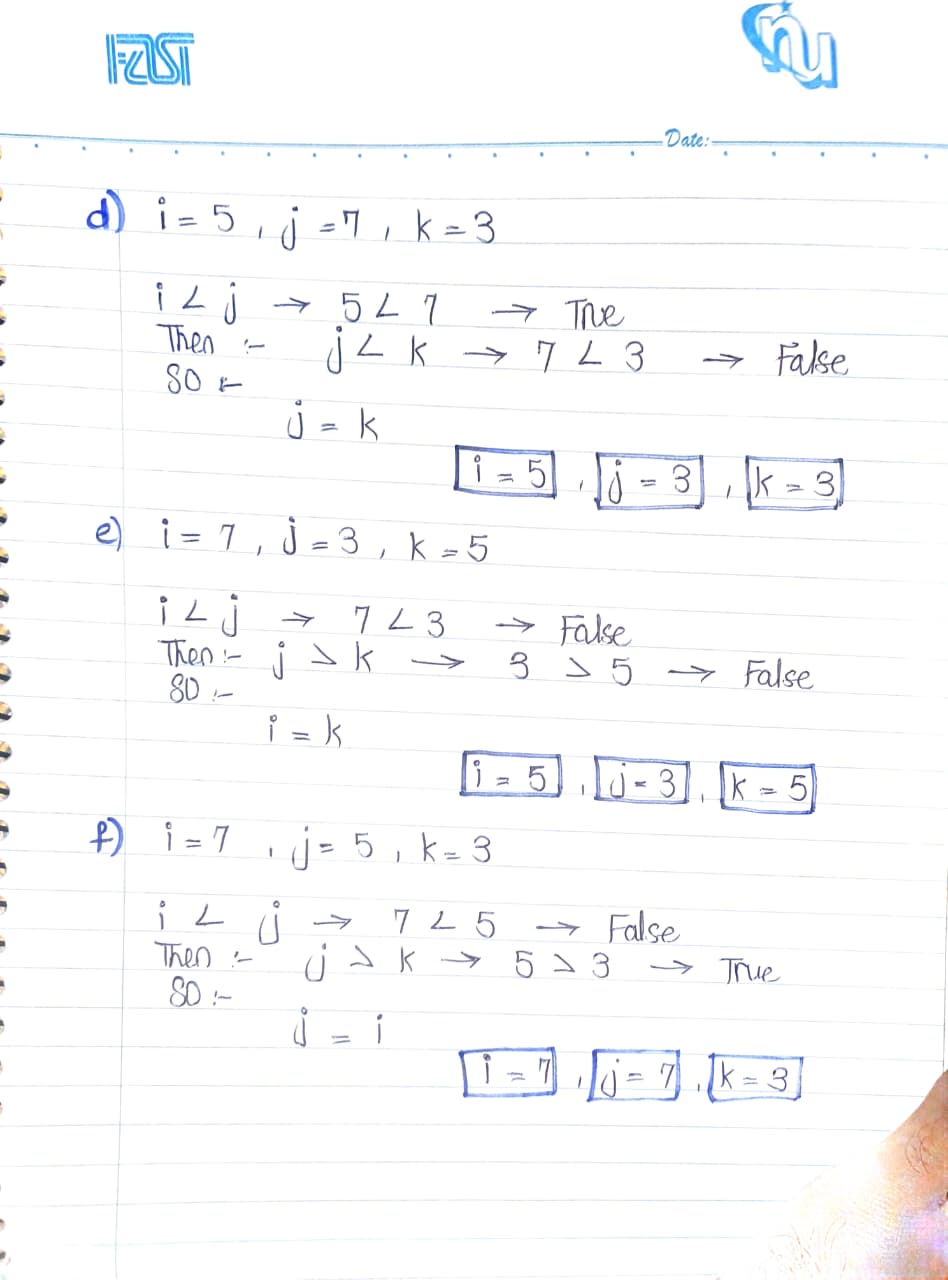 FAST nu
Date:
d) i = 5 , j = 7 , k = 3
i < j → 5 < 7 → True
Then :- j < k → 7 < 3 → False
SO :-
j = k
i = 5 , j = 3 , k = 3
e) i = 7 , j = 3 , k = 5
i < j → 7 < 3 → False
Then :- j > k → 3 > 5 → False
SO :-
i = k
i = 5 , j = 3 , k = 5
f) i = 7 , j = 5 , k = 3
i < j → 7 < 5 → False
Then :- j > k → 5 > 3 → True
SO :-
j = i
i = 7 , j = 7 , k = 3